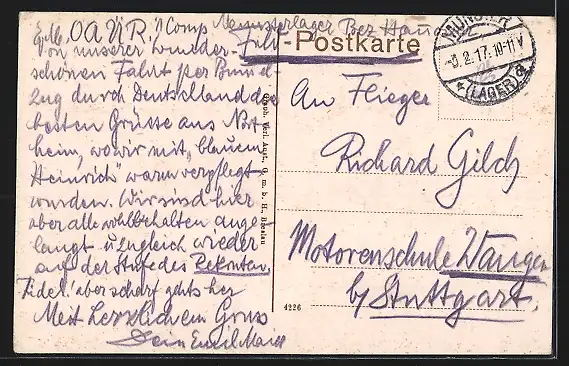 OAUR. 1 Comp Munsterlager Bez Han
Von unserer wunder-
schönen Fahrt per Bummel
zug durch Deutschland die
besten Grüsse aus Nort
heim, wo wir mit "blauem
Heinrich" warm verpflegt
wurden. Wir sind hier
aber alle wohlbehalten ange
langt u. gleich wieder
auf der Stufe des Rekruten.
Fidel! aber scharf gehts her
Mit herzlichem Gruss
Dein Emil Maier
Feld-Postkarte
MUNSTER
2.17.10-11V
(LAGER)
An Flieger
Richard Gilch
Motorenschule Wangen
b/ Stuttgart.
Graph. Verl. Anst., G. m. b. H., Breslau
4226